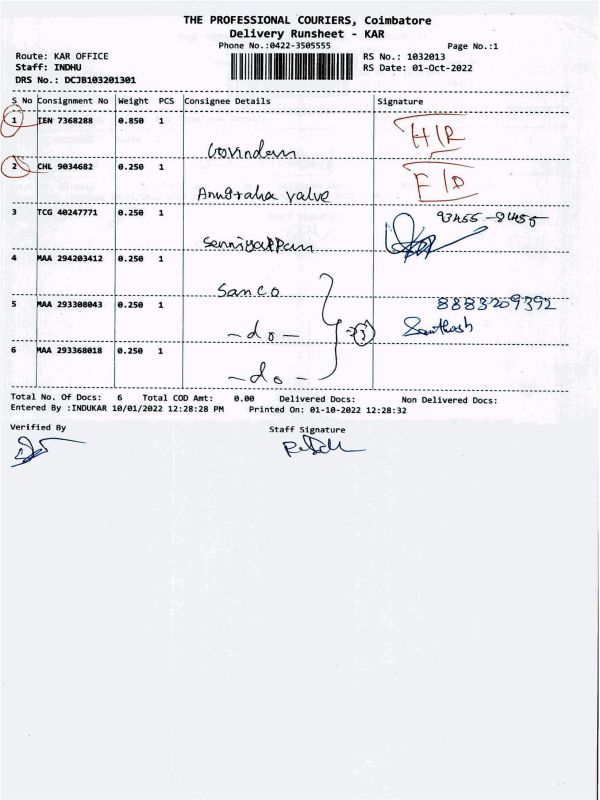 THE PROFESSIONAL COURIERS, Coimbatore
Delivery Runsheet - KAR
Phone No.:0422-3505555 Page No.:1
Route: KAR OFFICE RS No.: 1032013
Staff: INDHU RS Date: 01-Oct-2022
DRS No.: DCJB103201301
S No Consignment No Weight PCS Consignee Details Signature
1 IEN 7368288 0.850 1
Govindan H/R
2 CHL 9034682 0.250 1
Anugraha valve F/D
3 TCG 40247771 0.250 1 93455-81455
Senniyappan
4 MAA 294203412 0.250 1
Sanco
5 MAA 293308043 0.250 1 8883209392
-do- 3 Santhosh
6 MAA 293368018 0.250 1
-do-
Total No. Of Docs: 6 Total COD Amt: 0.00 Delivered Docs: Non Delivered Docs:
Entered By :INDUKAR 10/01/2022 12:28:28 PM Printed On: 01-10-2022 12:28:32
Verified By Staff Signature